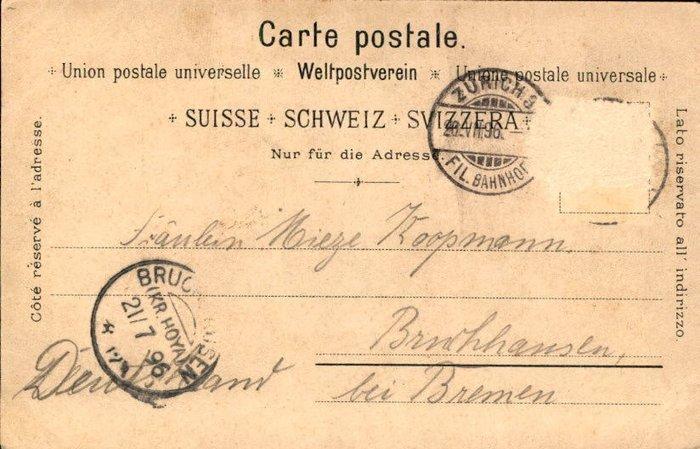 Carte postale.
Union postale universelle * Weltpostverein * Unione postale universale
+ SUISSE + SCHWEIZ + SVIZZERA +
Nur für die Adresse.
Côté réservé à l'adresse.
Lato riservato all' indirizzo.
ZÜRICH
VII.96.
FIL. BAHNHOF
Fräulein Mieze Koopmann.
Bruchhausen,
bei Bremen
Deutschland
BRUC SEN
(KR. HOYA)
21/7
96